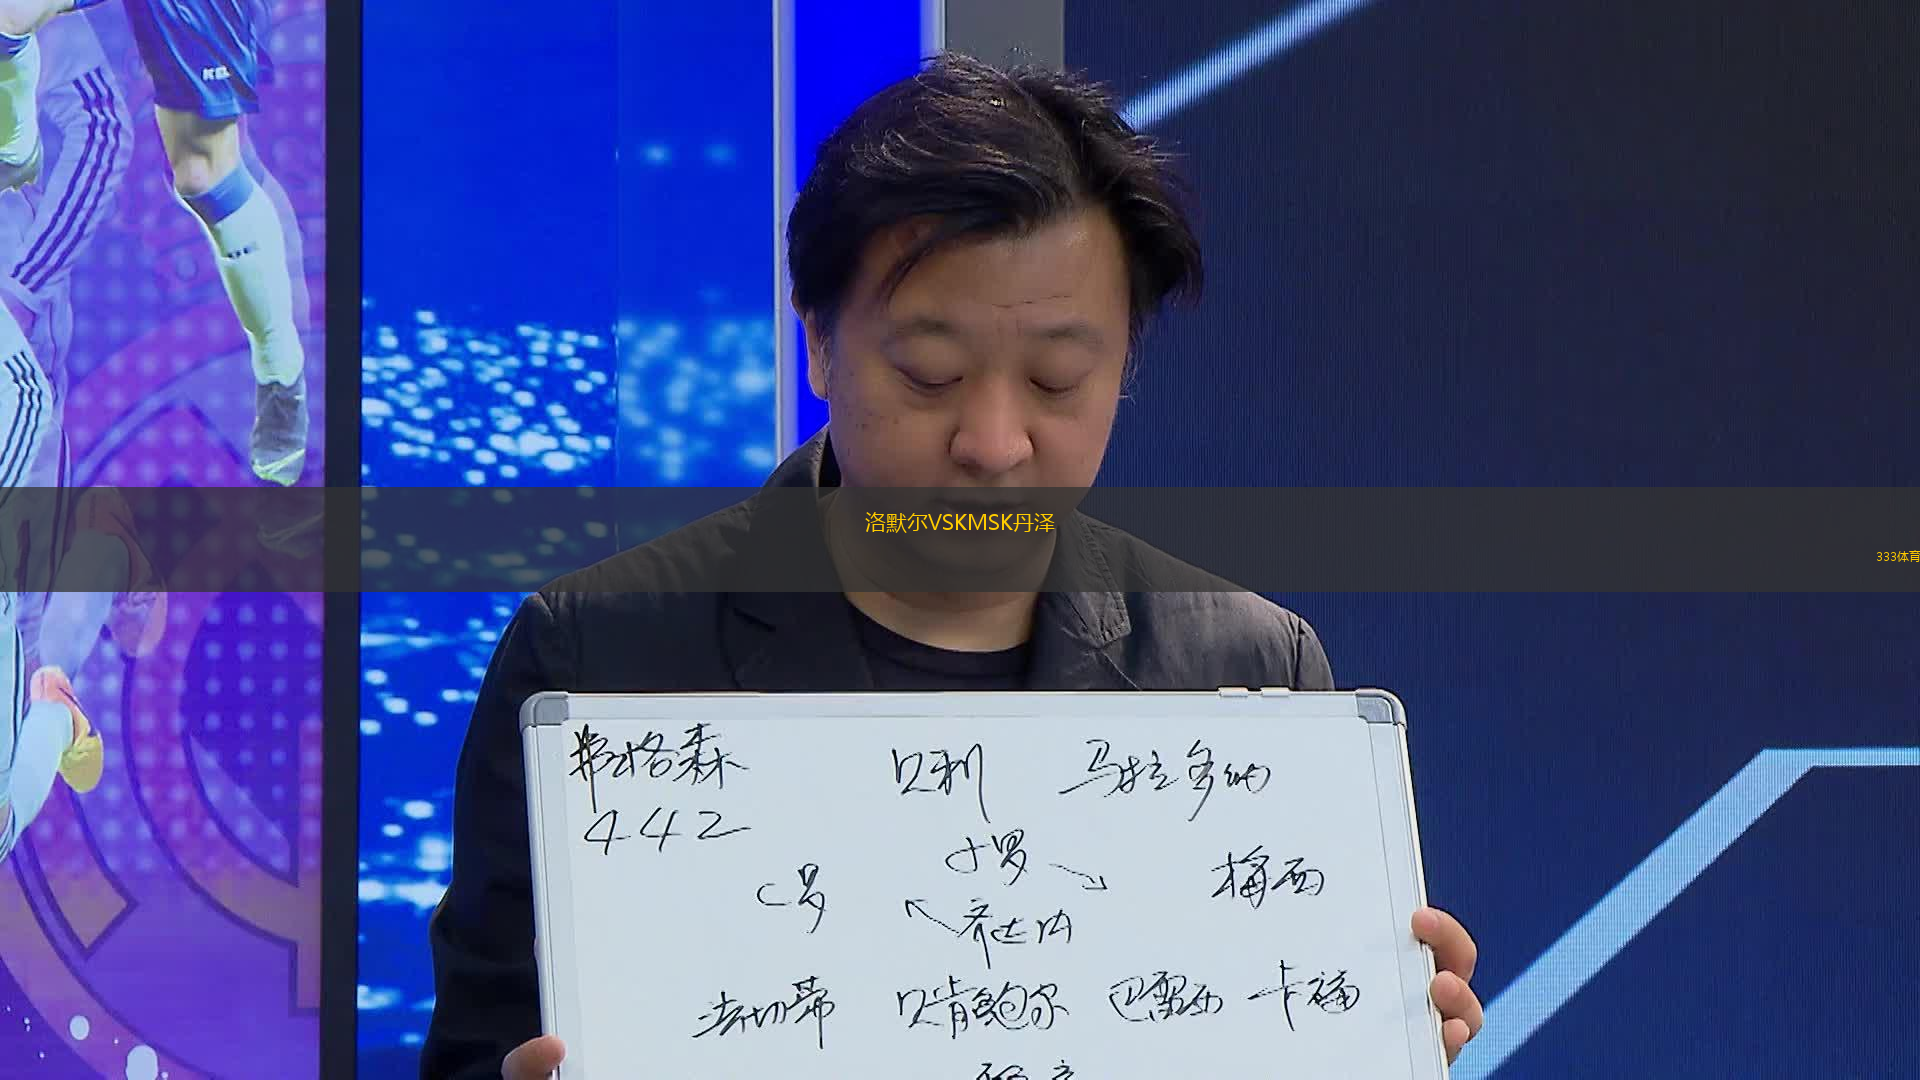 洛默尔VSKMSK丹泽
333体育
弗格森 贝利 马拉多纳
442
小罗
C罗 梅西
齐达内
法切蒂 贝肯鲍尔 巴雷西 卡福